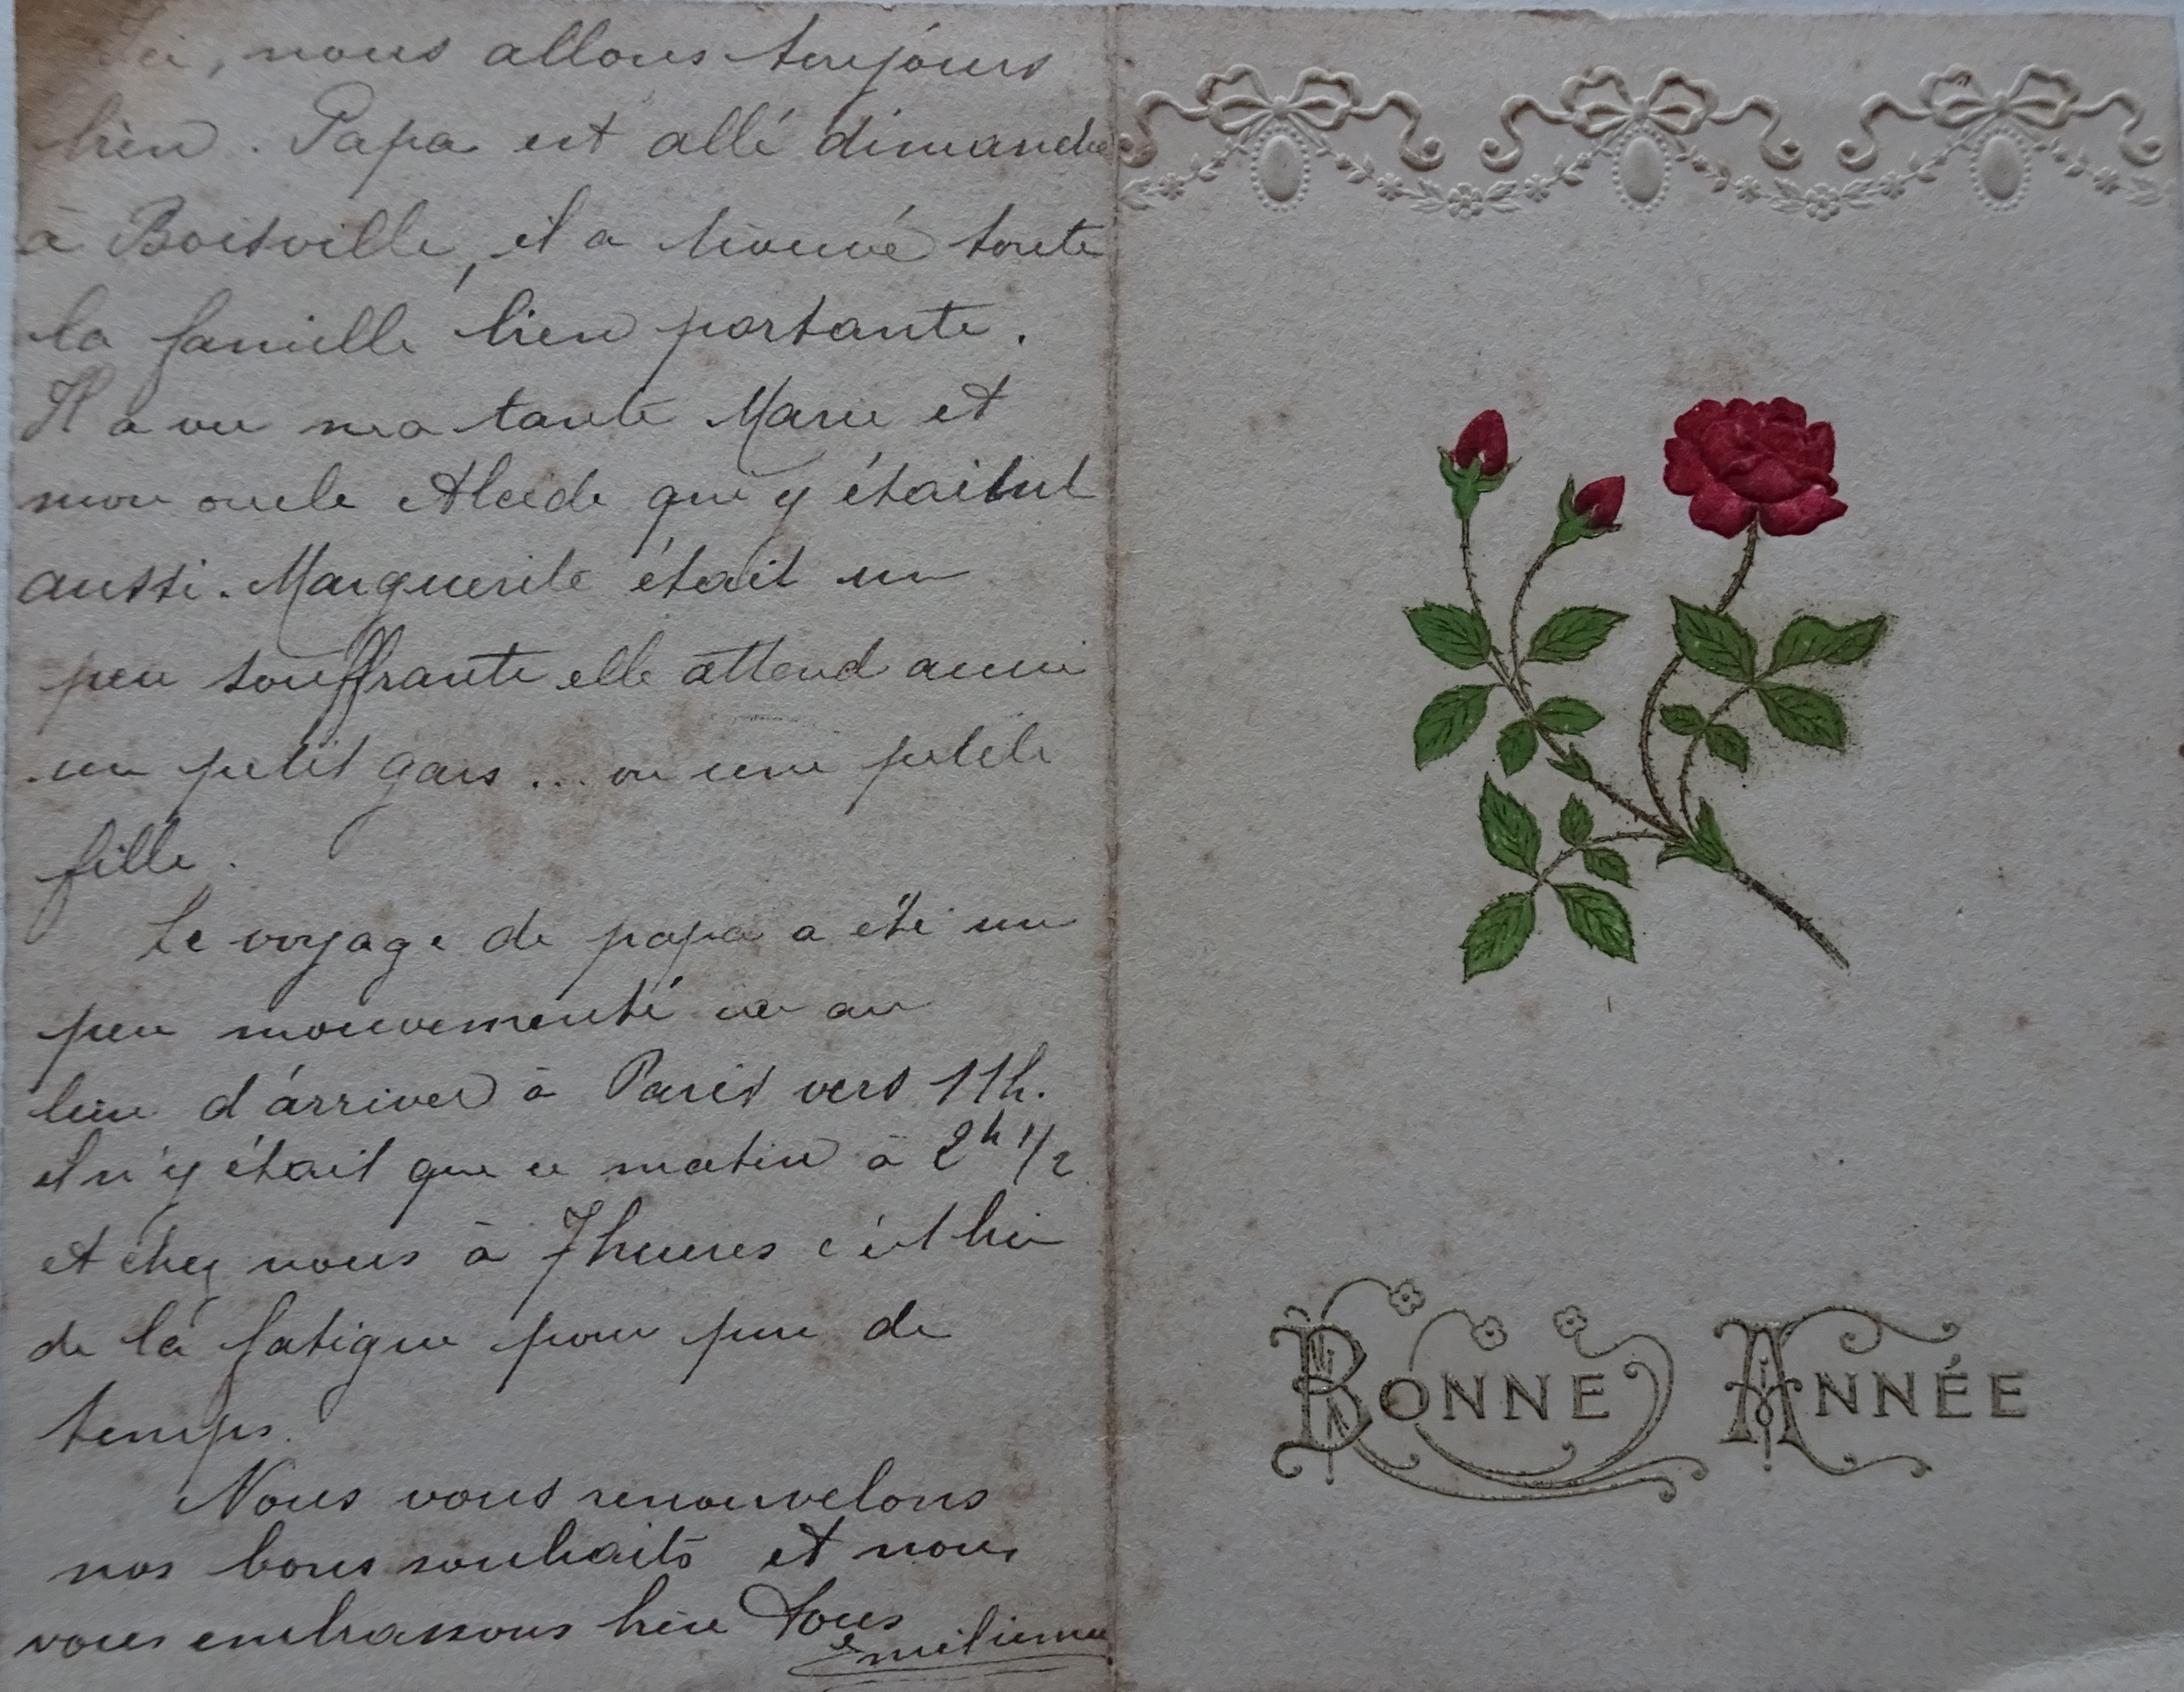 Ici, nous allons toujours
bien. Papa est allé dimanche
à Boisville, il a trouvé toute
la famille bien portante.
Il a vu ma tante Marie et
mon oncle Alcide qui y étaient
aussi. Marguerite était un
peu souffrante elle attend aussi
un petit gars... ou une petite
fille.
Le voyage de papa a été un
peu mouvementé car au
lieu d'arriver à Paris vers 11h.
il n'y était que ce matin à 2h 1/2
et chez nous à 7 heures c'est bien
de la fatigue pour peu de
temps.
Nous vous renouvelons
nos bons souhaits et nous
vous embrassons bien Tous
Emilienne
BONNE ANNÉE